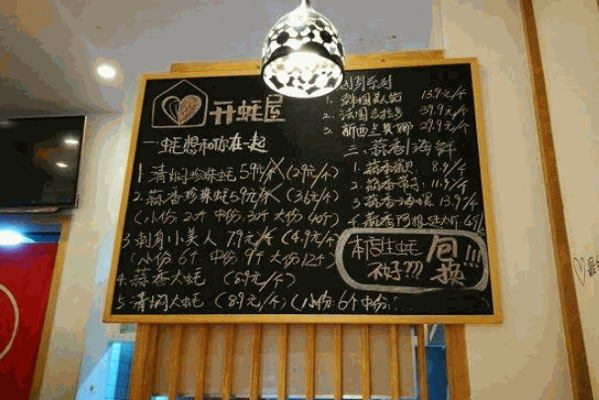 开蚝屋
一.蚝想和你在一起
1.清焖珍珠蚝 5.9元/个 (2.9元/个)
2.蒜香珍珠蚝 5.9元/个 (3.6元/个)
(小份:20个 中份:30个 大份:40个)
3.刺身小美人 7.9元/个 (4.9元/个)
(小份:6个 中份:9个 大份12个)
4.蒜香大蚝 (8.9元/个)
5.清焖大蚝 (8.9元/个)(小份:6个 中份:
系列
1. 13.9元/个
2. 法国 39.9元/个
3. 新西兰 29.9元/个
三.蒜香海鲜
1.蒜香 8.9/个
2.蒜香 11.9/个
3.蒜香 13.9/个
4.蒜香
本店生蚝 包
不好??? 换!!!